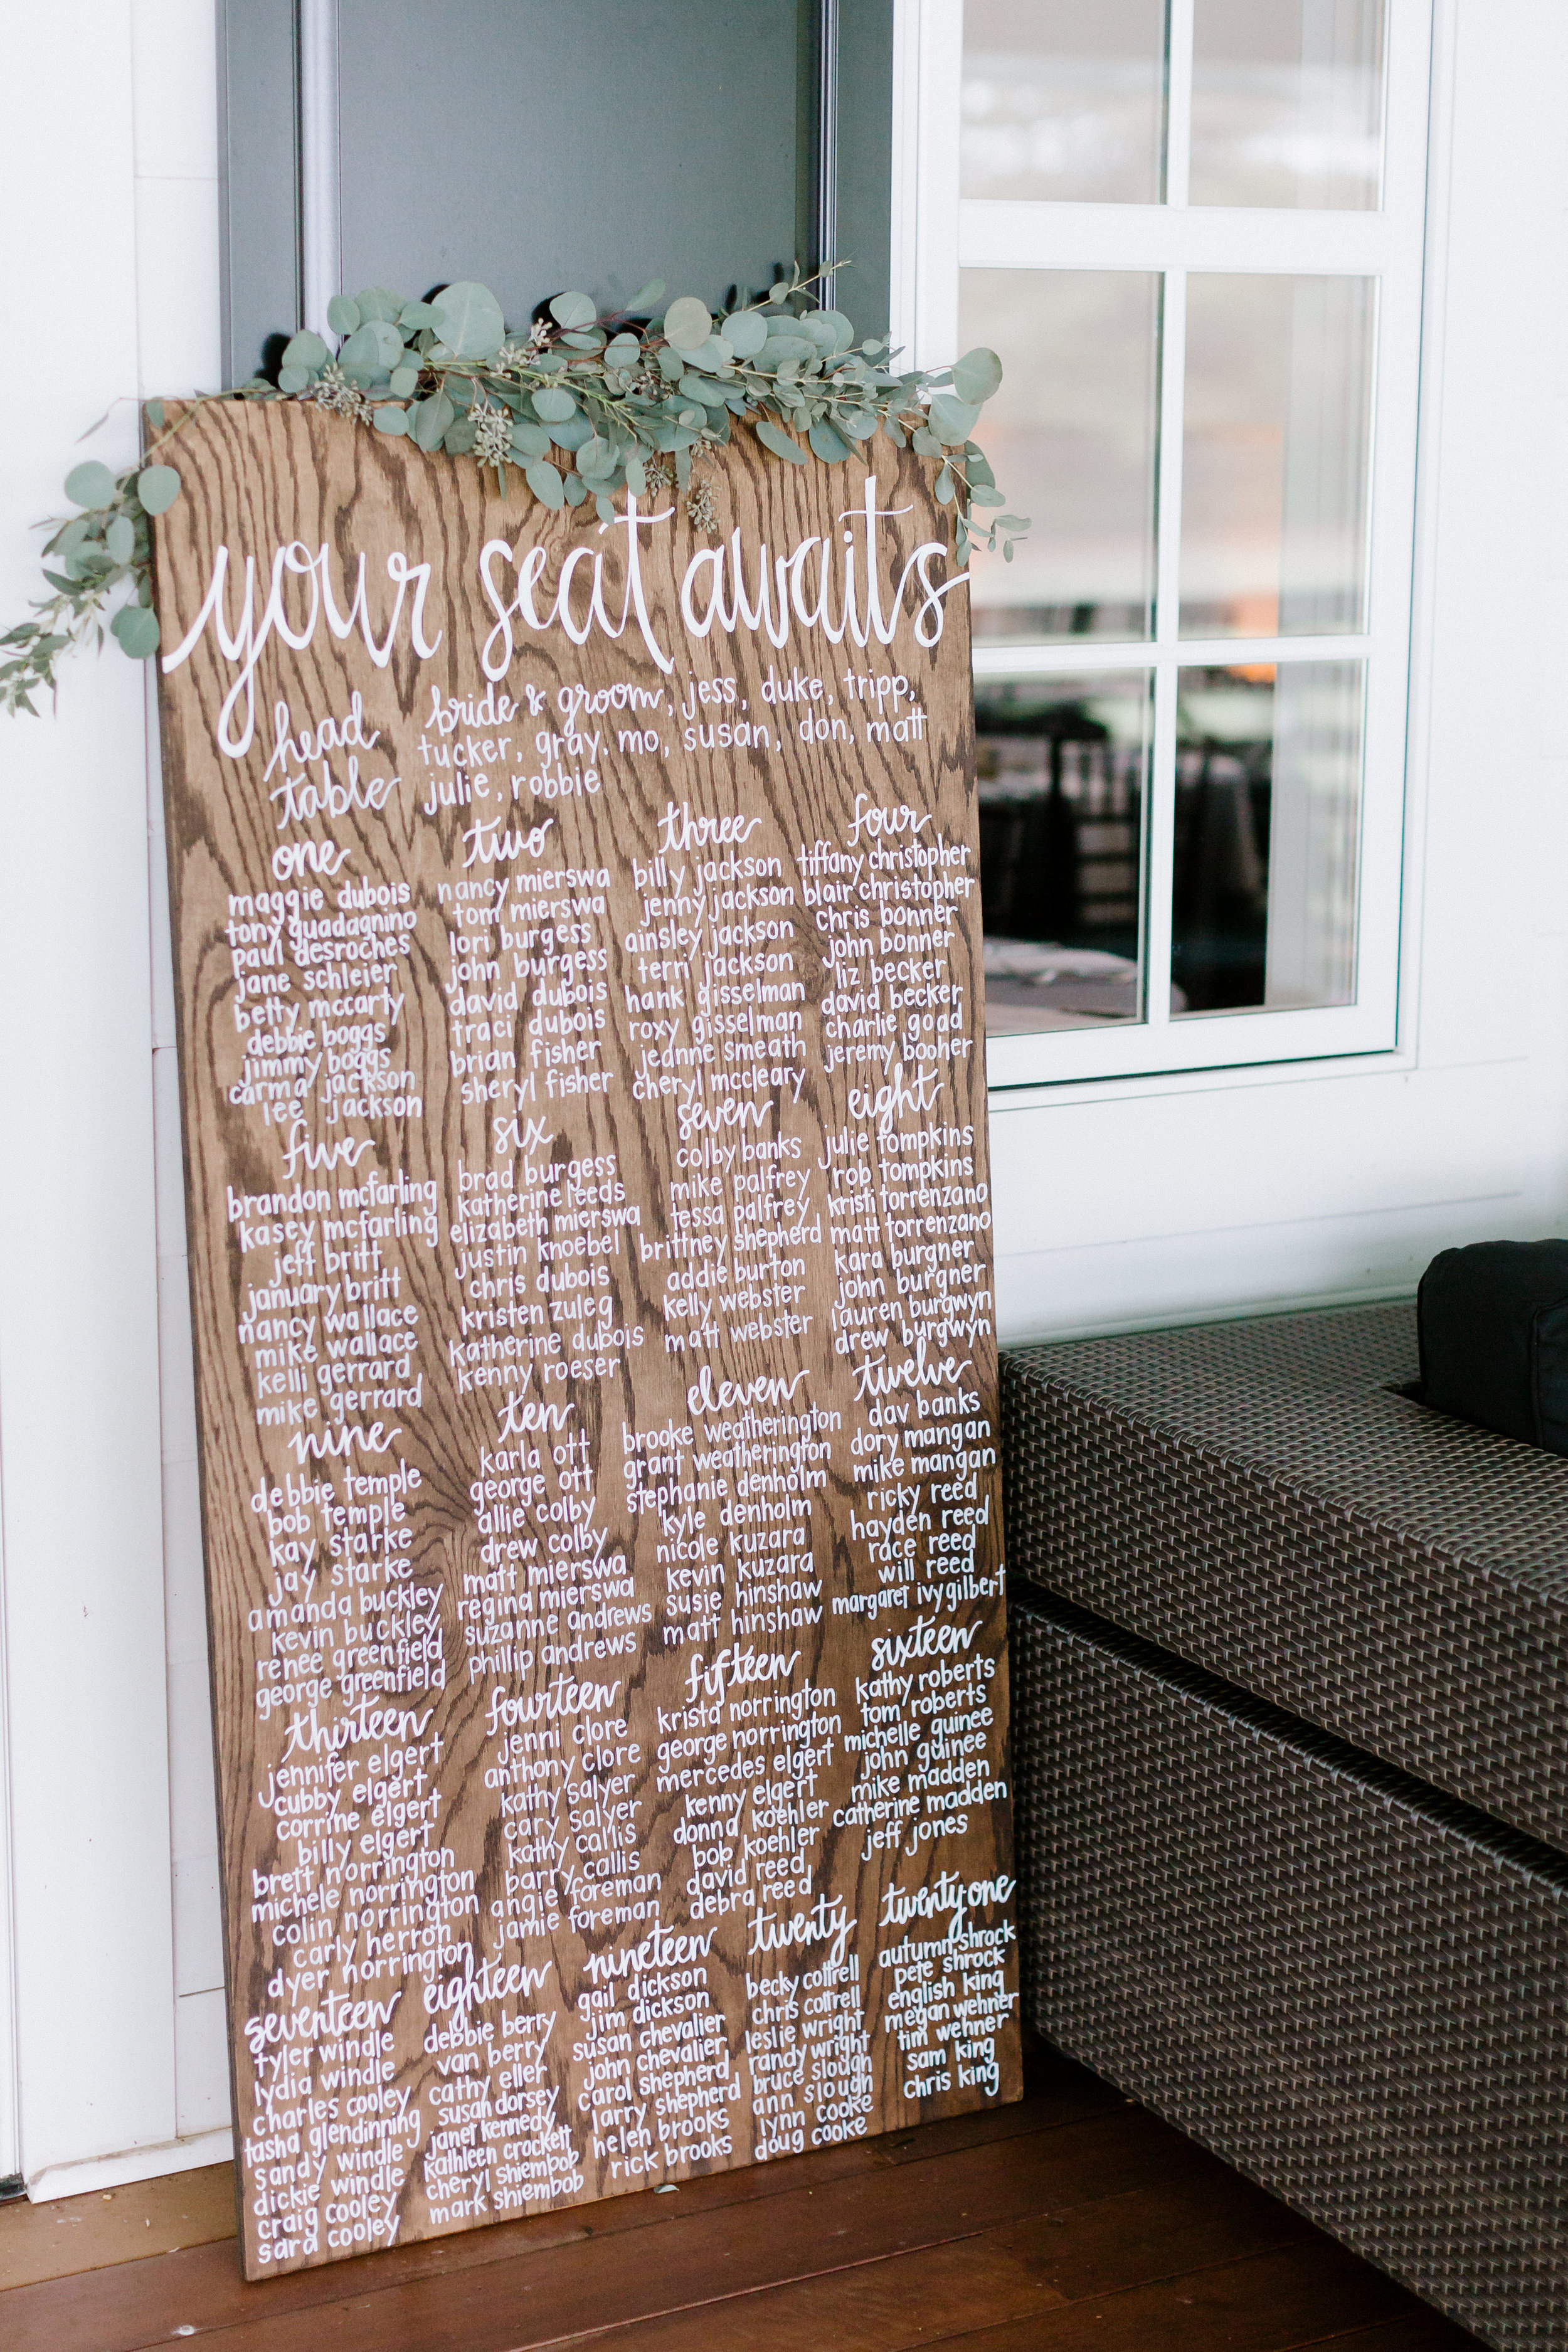 your seat awaits
head
table
bride & groom, jess, duke, tripp,
tucker, gray, mo, susan, don, matt
julie, robbie
one
maggie dubois
tony guadagnino
paul desroches
jane schleier
betty mccarty
debbie boggs
jimmy boggs
carma jackson
lee jackson
two
nancy mierswa
tom mierswa
lori burgess
john burgess
david dubois
traci dubois
brian fisher
sheryl fisher
three
billy jackson
jenny jackson
ainsley jackson
terri jackson
hank gisselman
roxy gisselman
jeanne smeath
cheryl mccleary
four
tiffany christopher
blair christopher
chris bonner
john bonner
liz becker
david becker
charlie goad
jeremy booher
five
brandon mcfarling
kasey mcfarling
jeff britt
january britt
nancy wallace
mike wallace
kelli gerrard
mike gerrard
six
brad burgess
katherine leeds
elizabeth mierswa
justin knoebel
chris dubois
kristen zuleg
katherine dubois
kenny roeser
seven
colby banks
mike palfrey
tessa palfrey
brittney shepherd
addie burton
kelly webster
matt webster
eight
julie tompkins
rob tompkins
kristi torrenzano
matt torrenzano
kara burgner
john burgner
lauren burgwyn
drew burgwyn
nine
debbie temple
bob temple
kay starke
jay starke
amanda buckley
kevin buckley
renee greenfield
george greenfield
ten
karla ott
george ott
allie colby
drew colby
matt mierswa
regina mierswa
suzanne andrews
phillip andrews
eleven
brooke weatherington
grant weatherington
stephanie denholm
kyle denholm
nicole kuzara
kevin kuzara
susie hinshaw
matt hinshaw
twelve
dav banks
dory mangan
mike mangan
ricky reed
hayden reed
race reed
will reed
margaret ivy gilbert
thirteen
jennifer elgert
cubby elgert
corrine elgert
billy elgert
brett norrington
michele norrington
colin norrington
carly herron
dyer norrington
fourteen
jenni clore
anthony clore
kathy salyer
cary salyer
kathy callis
barry callis
angie foreman
jamie foreman
fifteen
krista norrington
george norrington
mercedes elgert
kenny elgert
donna koehler
bob koehler
david reed
debra reed
sixteen
kathy roberts
tom roberts
michelle guinee
john guinee
mike madden
catherine madden
jeff jones
seventeen
tyler windle
lydia windle
charles cooley
tasha glendinning
sandy windle
dickie windle
craig cooley
sara cooley
eighteen
debbie berry
van berry
cathy eller
susan dorsey
janet kennedy
kathleen crockett
cheryl shiembob
mark shiembob
nineteen
gail dickson
jim dickson
susan chevalier
john chevalier
carol shepherd
larry shepherd
helen brooks
rick brooks
twenty
becky cottrell
chris cottrell
leslie wright
randy wright
bruce slough
ann slough
lynn cooke
doug cooke
twenty-one
autumn shrock
pete shrock
english king
megan wehner
tim wehner
sam king
chris king